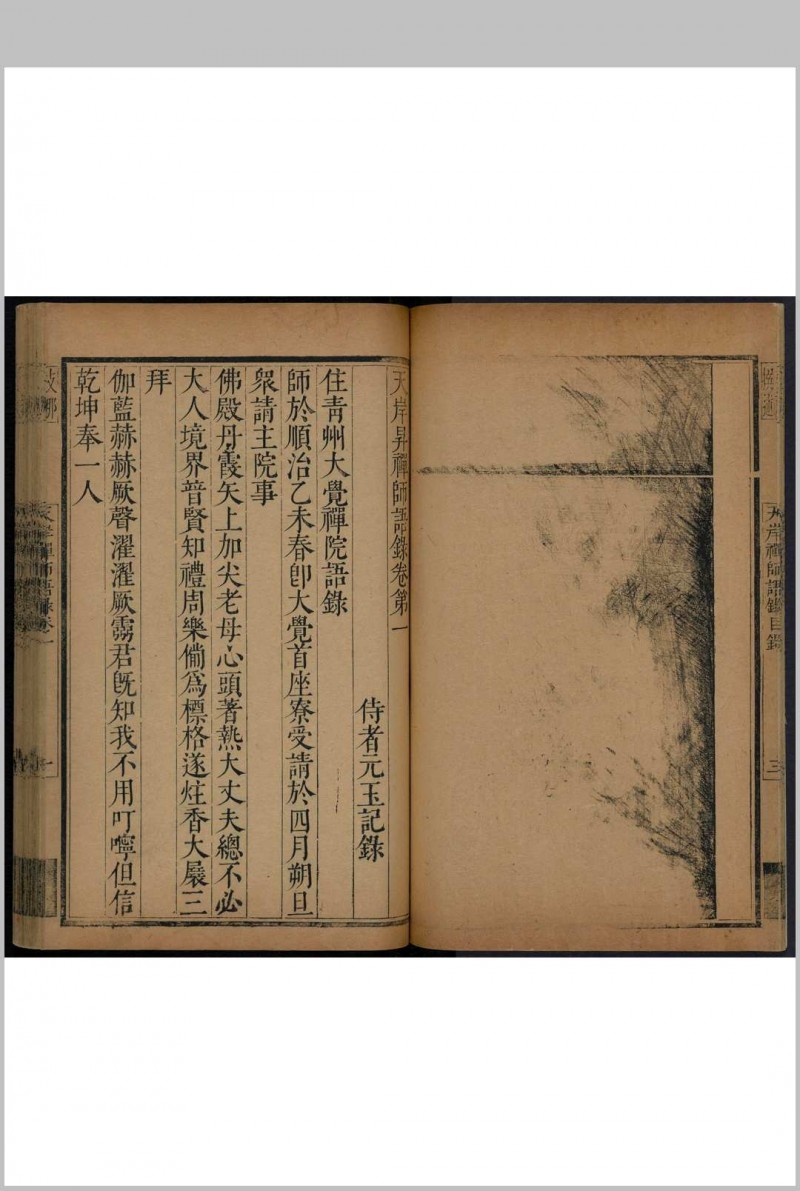 天岸禪師語錄目錄
三
天岸昇禪師語錄卷第一
侍者元玉記錄
住青州大覺禪院語錄
師於順治乙未春卽大覺首座寮受請於四月朔旦
衆請主院事
佛殿丹霞矢上加尖老母心頭著熱大丈夫總不必
大人境界普賢知禮周樂備爲標格遂炷香大展三
拜
伽藍赫赫厥聲濯濯厥靈君旣知我不用叮嚀但信
乾坤奉一人
天岸禪師語錄卷一
一